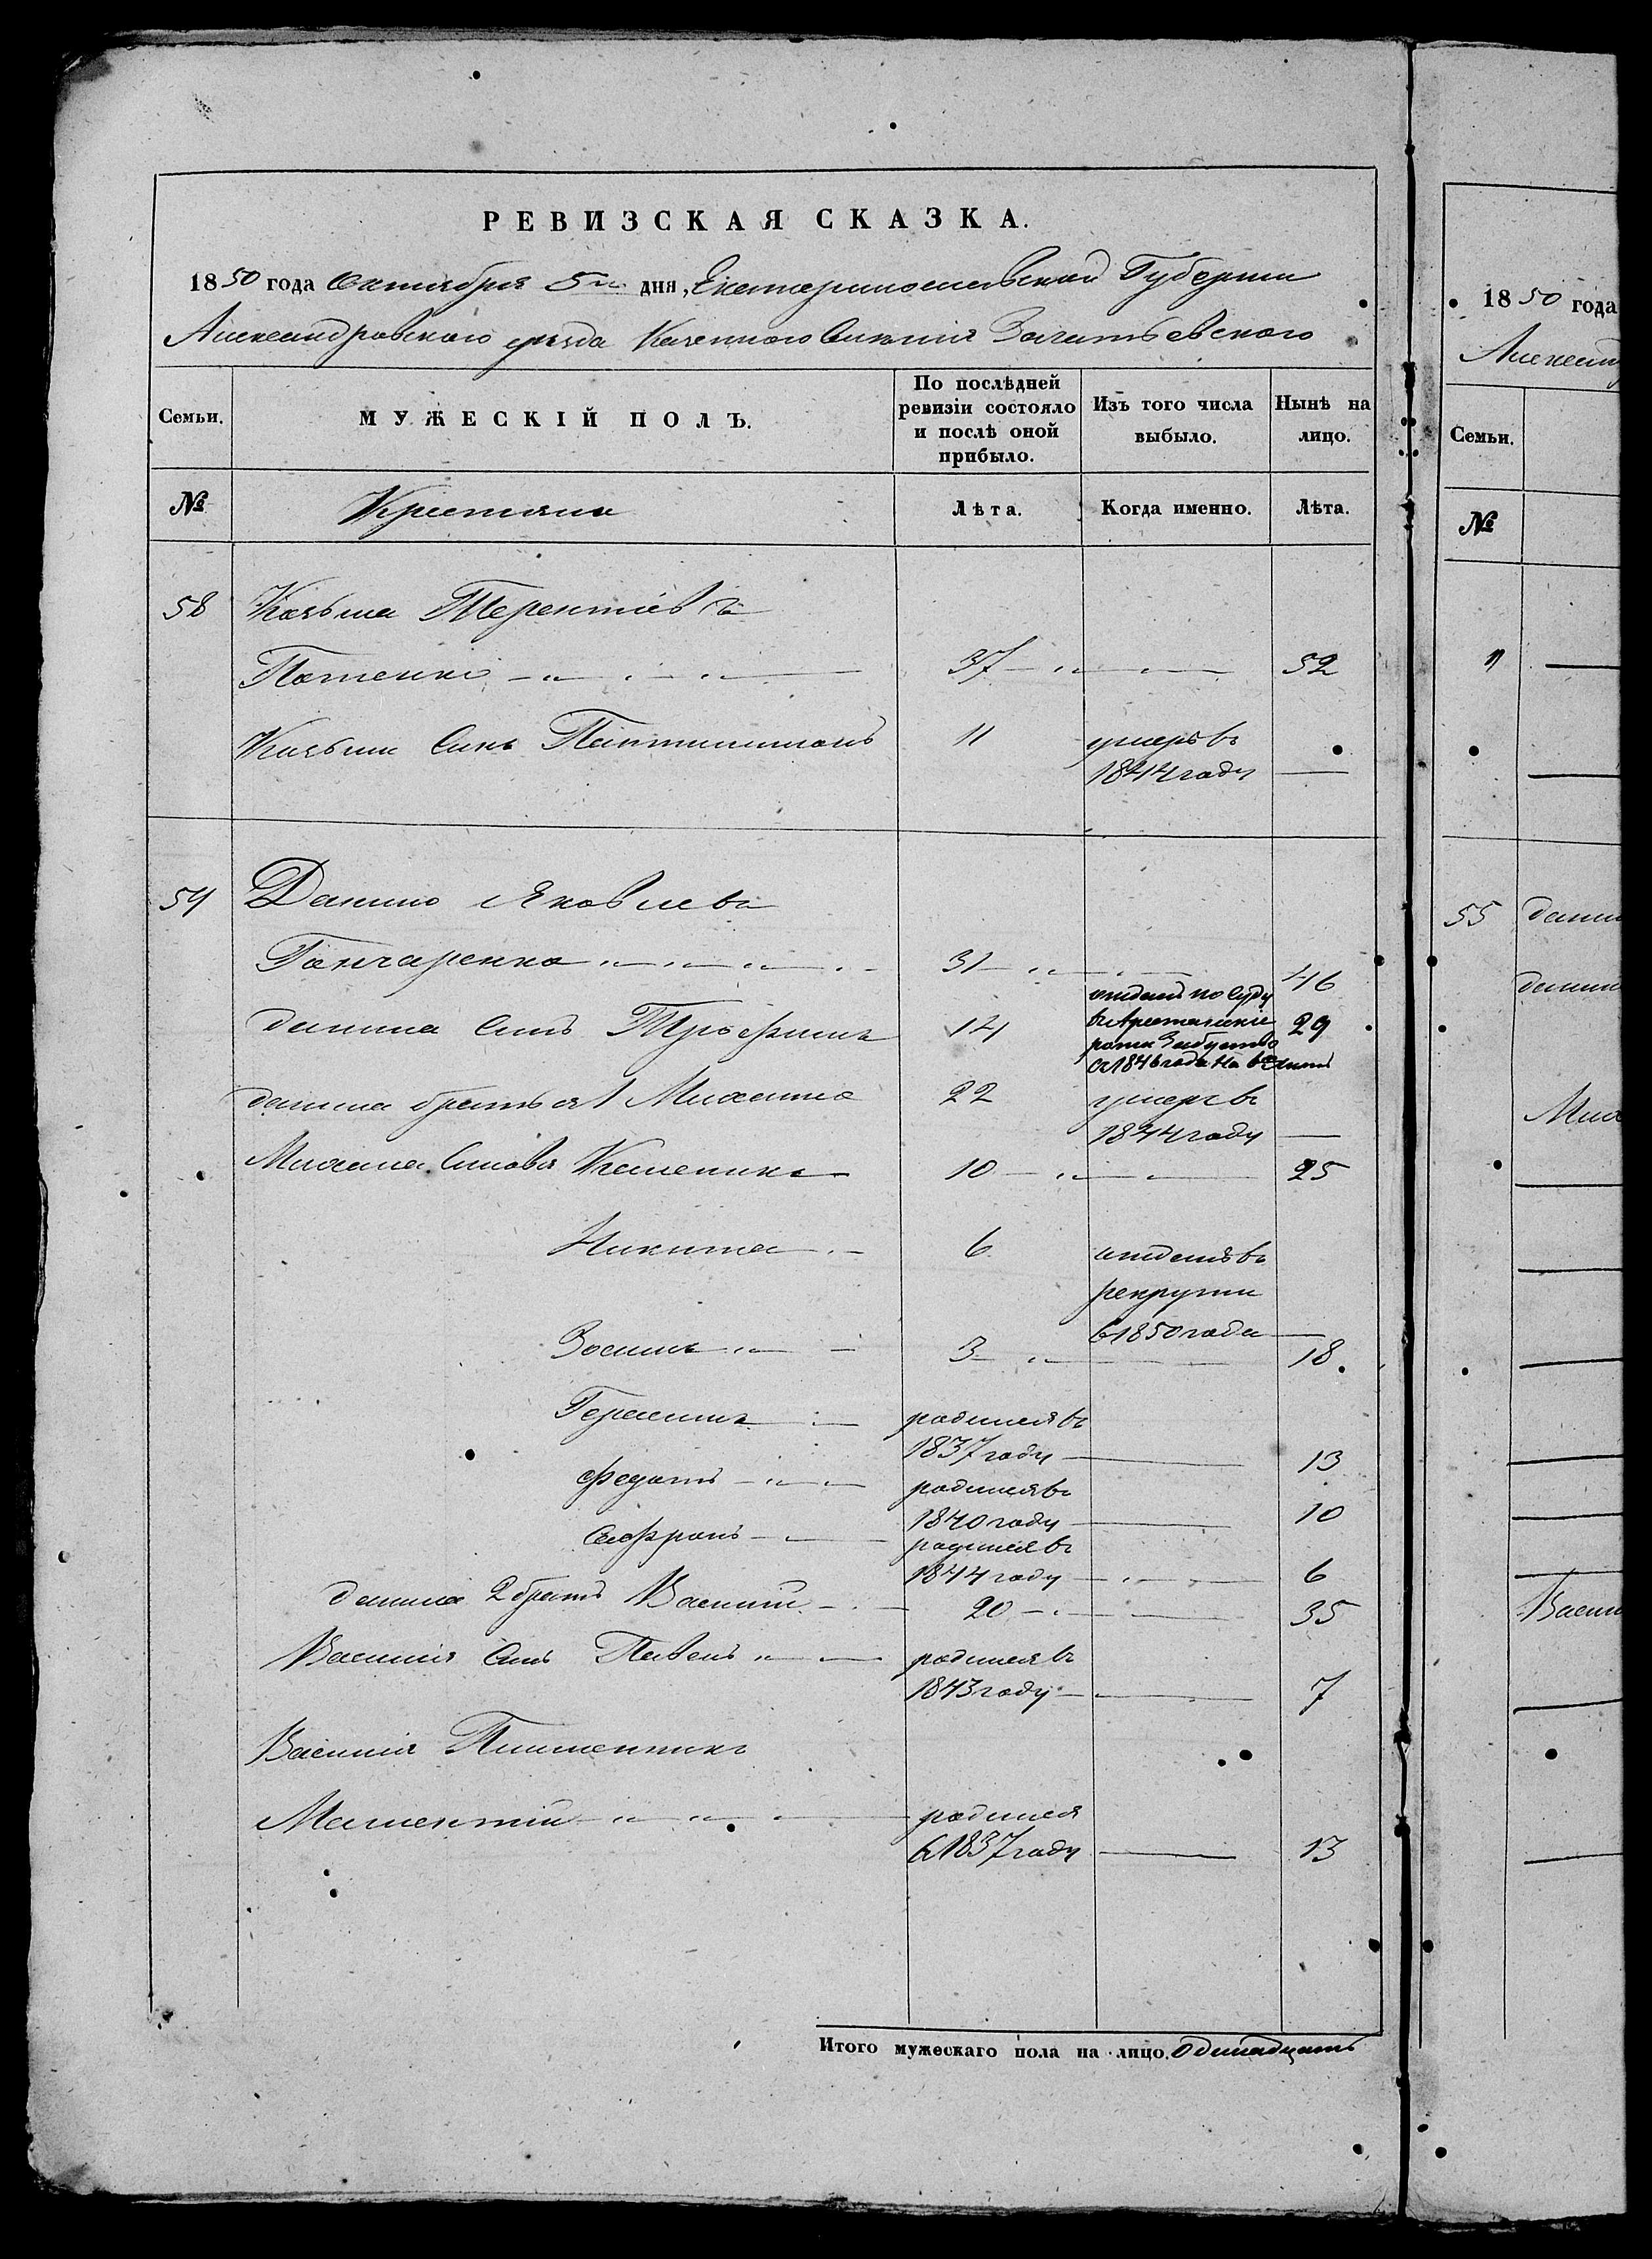 РЕВИЗСКАЯ СКАЗКА.
1850 года Октября 5го дня, Екатеринославской Губернии
Александровского уезда Казенного Селения
Семьи.
МУЖЕСКІЙ ПОЛЪ.
По послѣдней ревизіи состояло и послѣ оной прибыло.
Изъ того числа выбыло.
Нынѣ на лицо.
№
Крестяне
Лѣта.
Когда именно.
Лѣта.
58 Козьма Терентіевъ
37 52
Козьми Синъ Пантилимонъ 11 умеръ въ
1844 году
59 Данило Яковлевъ
Гончаренко 31 46
данила Синъ Трофимъ 14 отданъ по Суду
въ Арестанскіе
роти
съ 1846 года на 29
данила братья 1 Михаила 22 умеръ въ
1844 году
Михаила Синовя Климентий 10 25
Никита 6 отданъ въ
рекрути
въ 1850 году
Зосимъ 3 18
Герасимъ родился въ
1837 году 13
Федотъ родился въ
1840 году 10
Софронъ родился въ
1844 году 6
данила 2 братъ Василий 20 35
Василия Синъ Павелъ родился въ
1843 году 7
Василия Племенникъ
Мелентий родился
въ 1837 году 13
Итого мужескаго пола на лицо. Одинадцать
1850 года
Семьи.
№
55